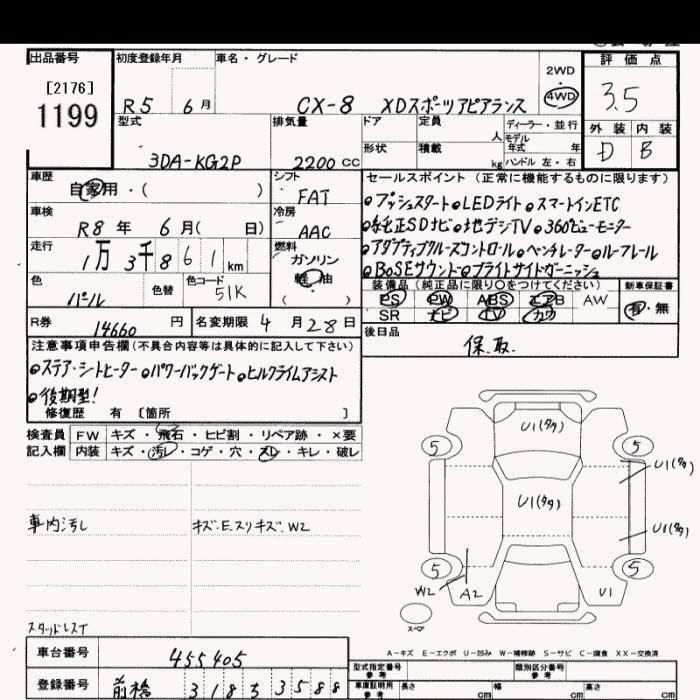 出品番号
[2176]
1199
初度登録年月
R5 6月
車名・グレード
CX-8 XDスポーツアピアランス
2WD
・
4WD
評価点
3.5
外装 内装
D B
型式
3DA-KG2P
排気量
2200 cc
ドア
形状
定員
人
積載
kg
ディーラー・並行
モデル
年式 年
ハンドル 左・右
車歴
自家用・( )
車検
R8年 6月( 日)
走行
1万3千861km
色
パール
色替
色コード
51K
シフト
FAT
冷房
AAC
燃料
ガソリン
軽油
( )
セールスポイント (正常に機能するものに限ります)
●プッシュスタート●LEDライト●スマートインETC
●純正SDナビ●地デジTV●360°ビューモニター
●アダプティブクルーズコントロール●ベンチレーター●ルーフレール
●BOSEサウンド●ブライトサイドガーニッシュ
装備品 (純正品に限り○をつけてください)
PS PW ABS エアB AW
SR ナビ TV カワ
新車保証書
有・無
R券
14660 円
名変期限 4月28日
後日品
保.取.
注意事項申告欄(不具合内容等は具体的に記入して下さい)
●ステア・シートヒーター●パワーバックゲート●ヒルクライムアシスト
●後期型!
修復歴 有 [箇所 ]
検査員
記入欄
FW キズ・飛石・ヒビ割・リペア跡・×要
内装 キズ・汚レ・コゲ・穴・スレ・キレ・破レ
車内汚し
キズ.E.スリキズ.W2
スタッドレスT
U1(タタ)
5 5
U1(タタ)
U1(タタ)
U1(タタ)
5 5
W2 A2 U1
スペア
A-キズ E-エクボ U-凹み W-補修跡 S-サビ C-腐食 XX-交換済
車台番号
455405
登録番号
前橋 318 3588
型式指定番号
参考
類別区分番号
参考
車庫証明用
参考
長さ cm
幅 cm
高さ cm